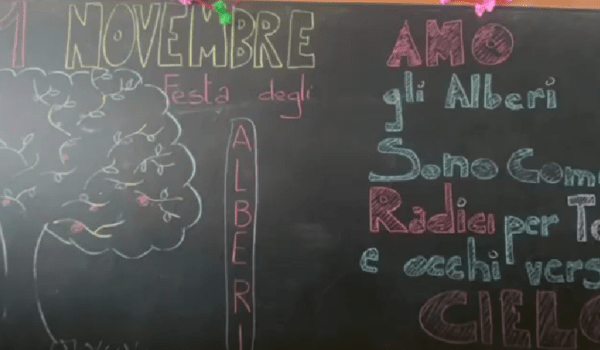 1 NOVEMBRE
Festa degli
ALBERI
AMO
gli Alberi
Sono Com
Radici per Te
e occhi vers
CIELO